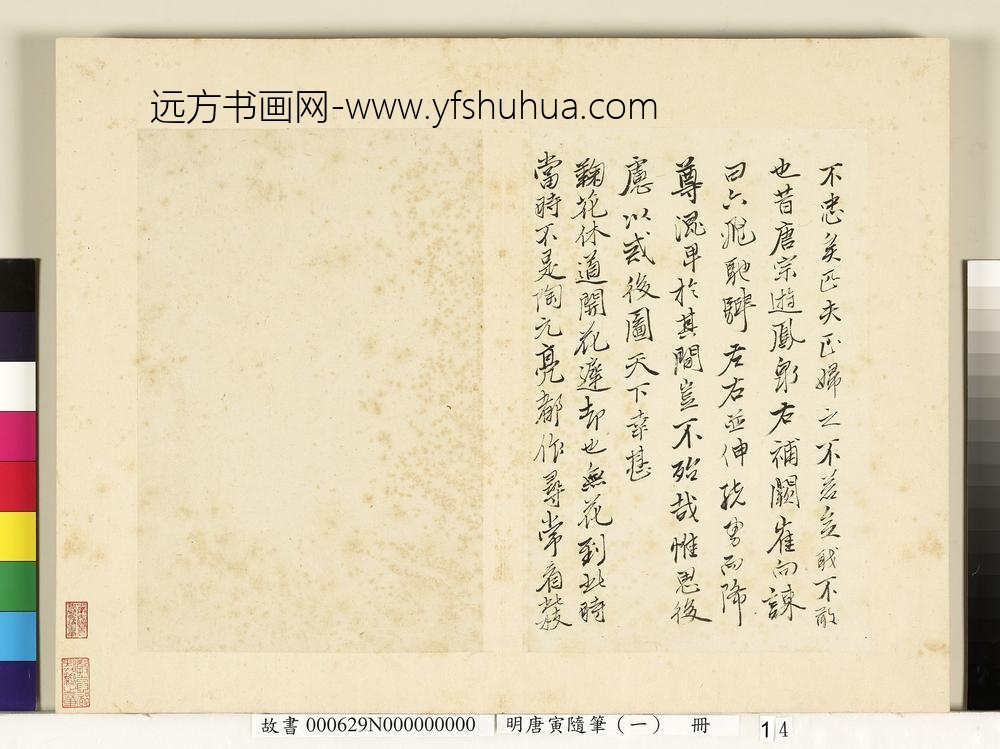 远方书画网-www.yfshuhua.com
不忠矣匹夫匹婦之不若
也昔唐宗遊鳳泉右補闕崔向諫
曰六飛馳騁左右並伸
尊混卑於其間豈不殆哉惟思後
慮以貳後圖天下幸甚
鞠花休道開花遲却也無花到此時
當時不是陶元亮都作尋常看
故書 000629N000000000 明唐寅隨筆（一） 冊 14